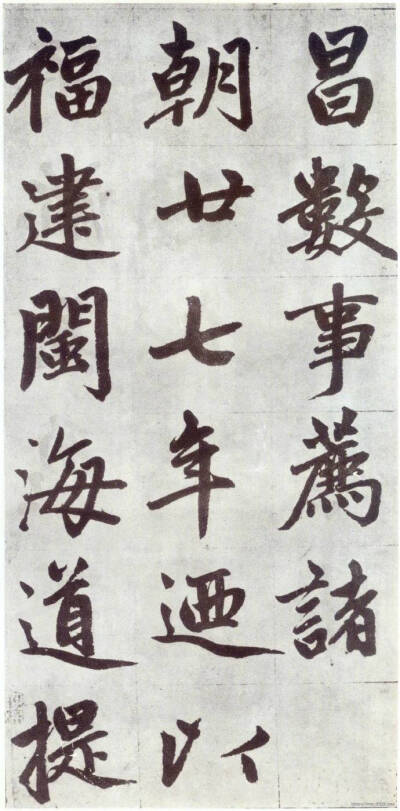 昌數事薦諸
朝廿七年迺以
福建閩海道提